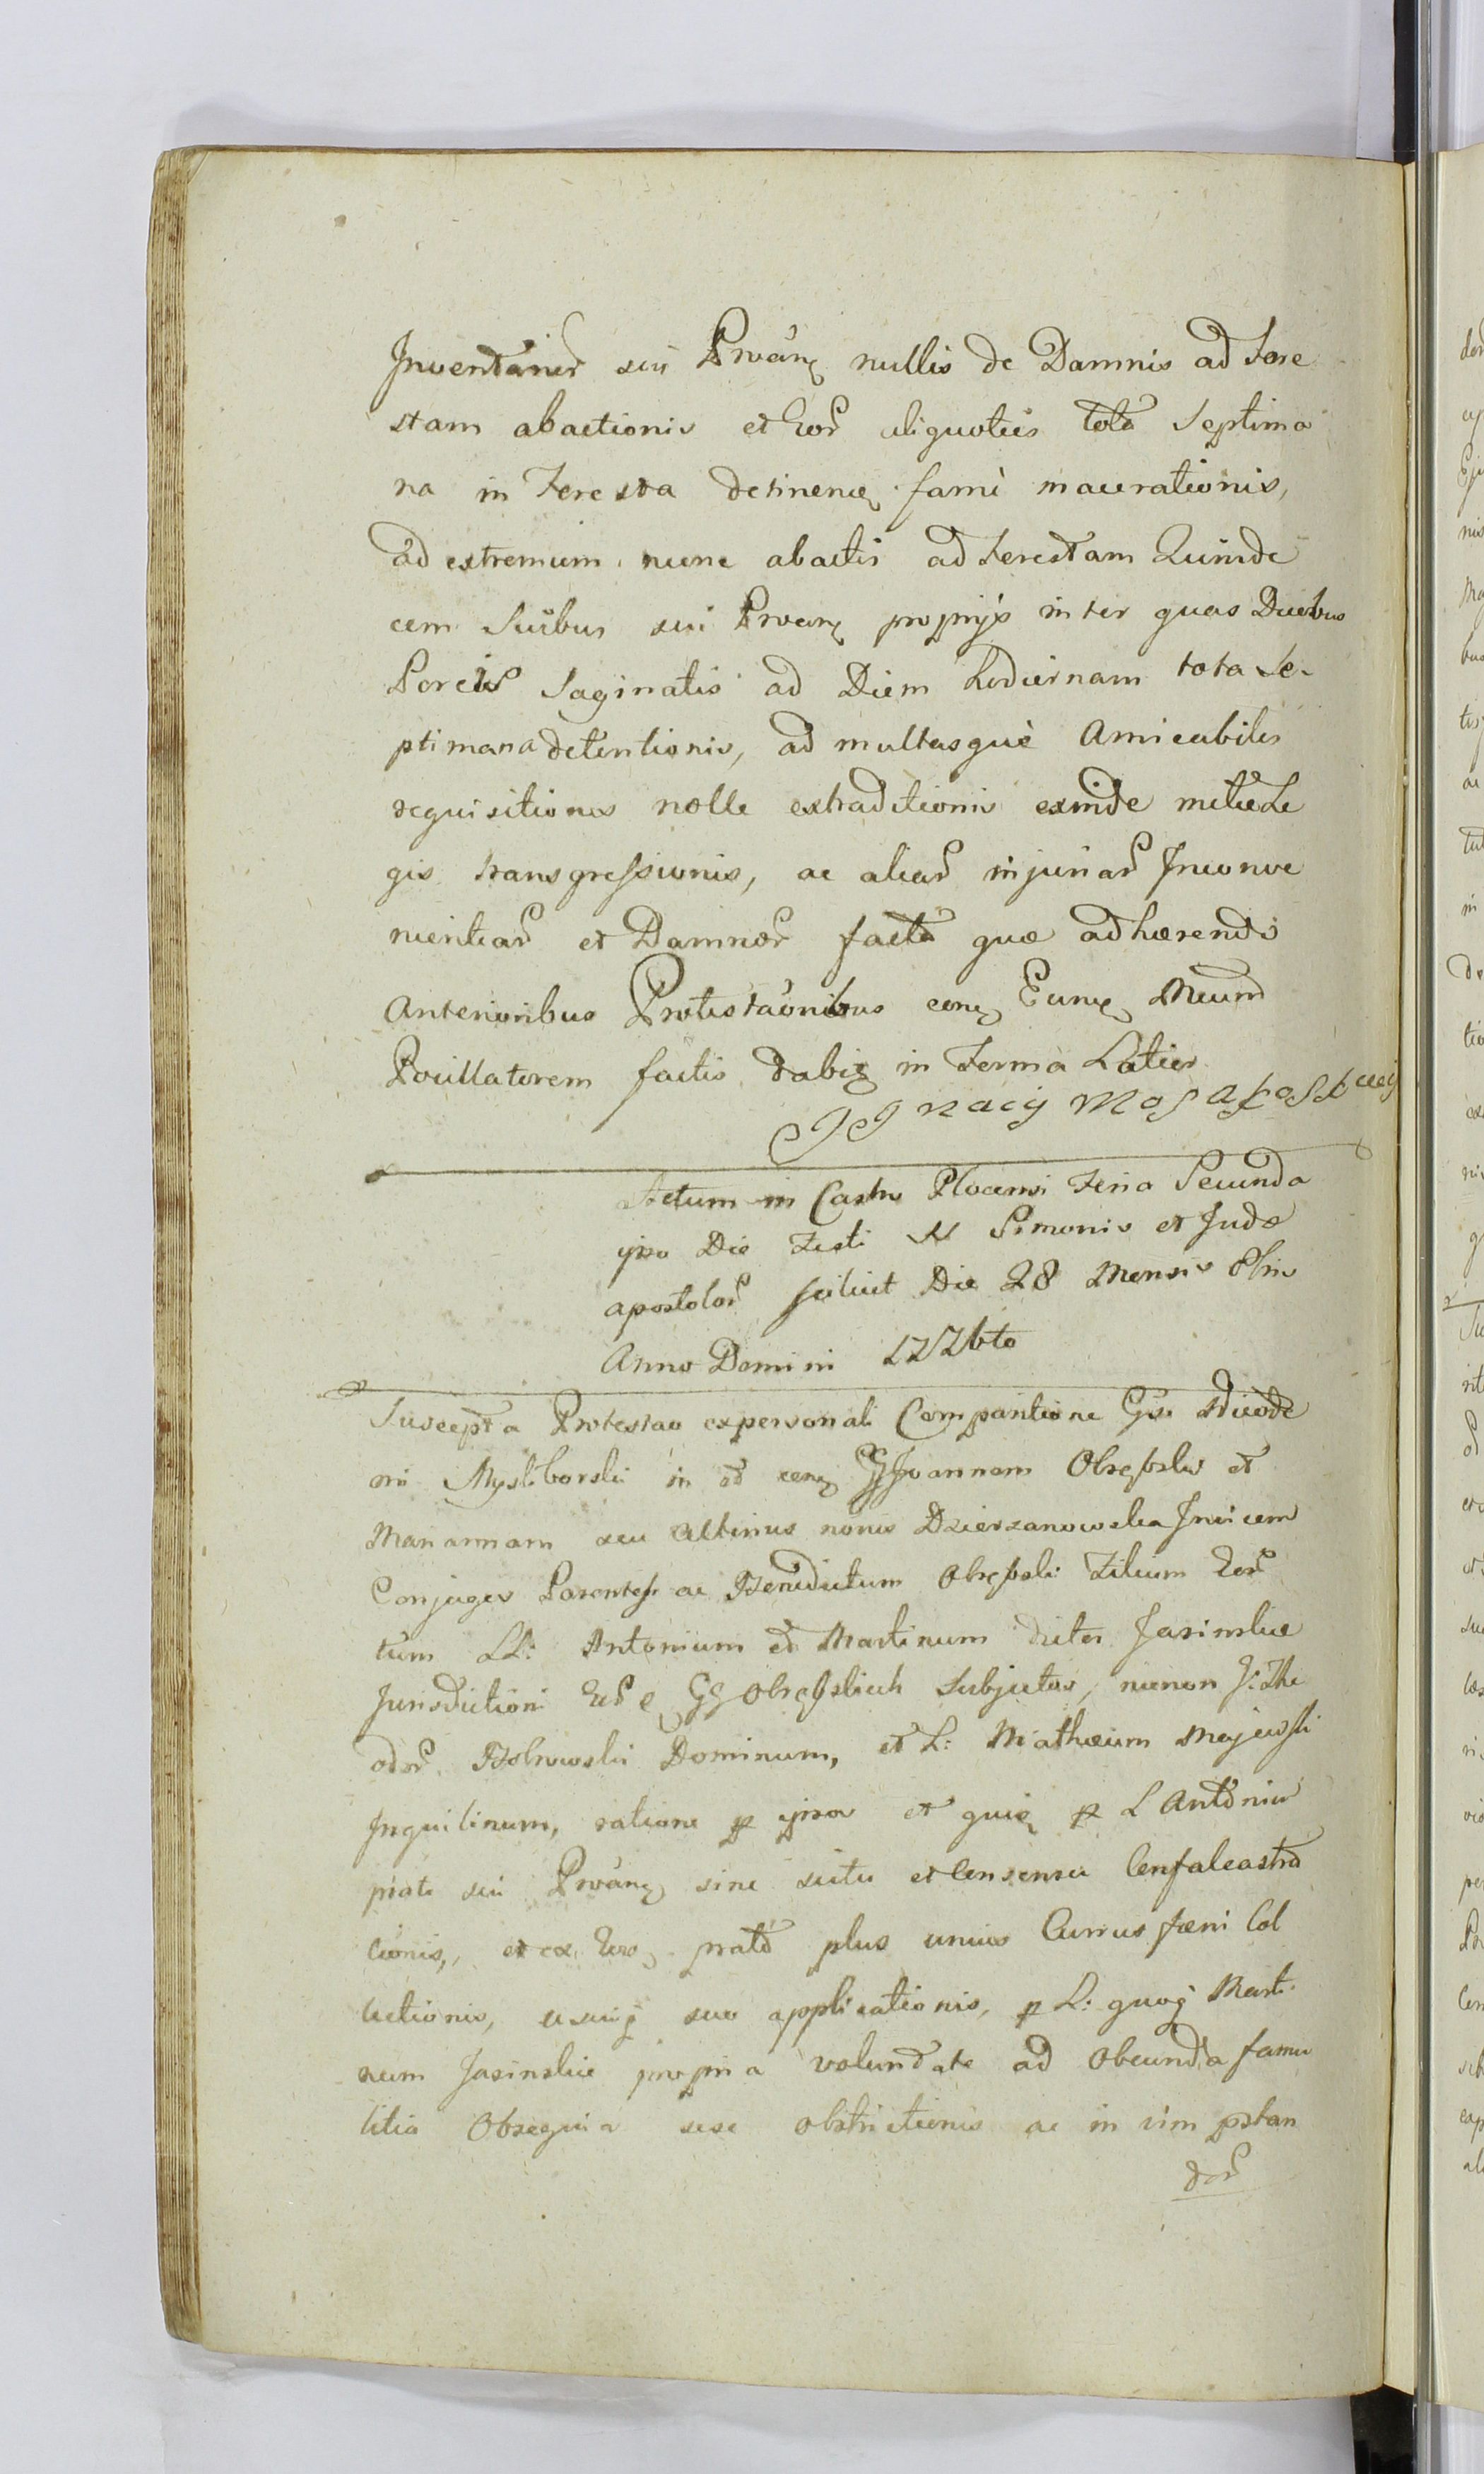 Inventarior sui Prnang nullis de Damnis ad Fore
stam abactionis et Eor aliquoties tota Septima
na in Foresta detineng fami macerationis,
ad extremum nunc abactis ad Forestam Quinde
cem Suibus sui Prnang proprijs inter quas Duobus
Porcis Saginatis ad Diem hodiernam tota Se-
ptimana detentionis, ad multasque Amicabiles
requisitiones nolle extraditionis exinde mulctæ Le
gis transgressionis, ac aliar injuriar Inconve
nientiar et Damnor facta quæ adhærendo
Anterioribus Protestaõnibus cong Eung Meum
Pocillatorem factis in Forma Latior
Ignacy
Actum in Castro Plocensi Feria Secunda
ipso Die Festi SS Simonis et Judæ
apostolor scilicet Die 28 Mensis Obris
Anno Domini
Suscepta Protestao ex personali Comparitione Gsi
ori Mysliborski in et cong GG Joannem Obrębski et
Mariannam seu alterius nõnis Dzierzanowska Invicem
Conjuges Parentes ac Benedictum Obrębski Filium Eor
tum LL: Antonium et Martinum dictos Jasinskie
Jurisdictioni GG Obrębskich Subjectos, necnon G: The
odor Bobrowski Dominum, et L: Mathæum Majewski
Inquilinum, ratione p ipsos et quia p L Antoniu
prati sui Prnang sine scitu et Consensu Confalcastra
tionis, et ex prato plus unius Currus fæni Col
lectionis, usuiq suo applicationis, p L: quoq Marti
num Jasinskie propria voluntate ad Obeunda famu
litia Obsequia sese obstrictionis ac in vim pstan
dor